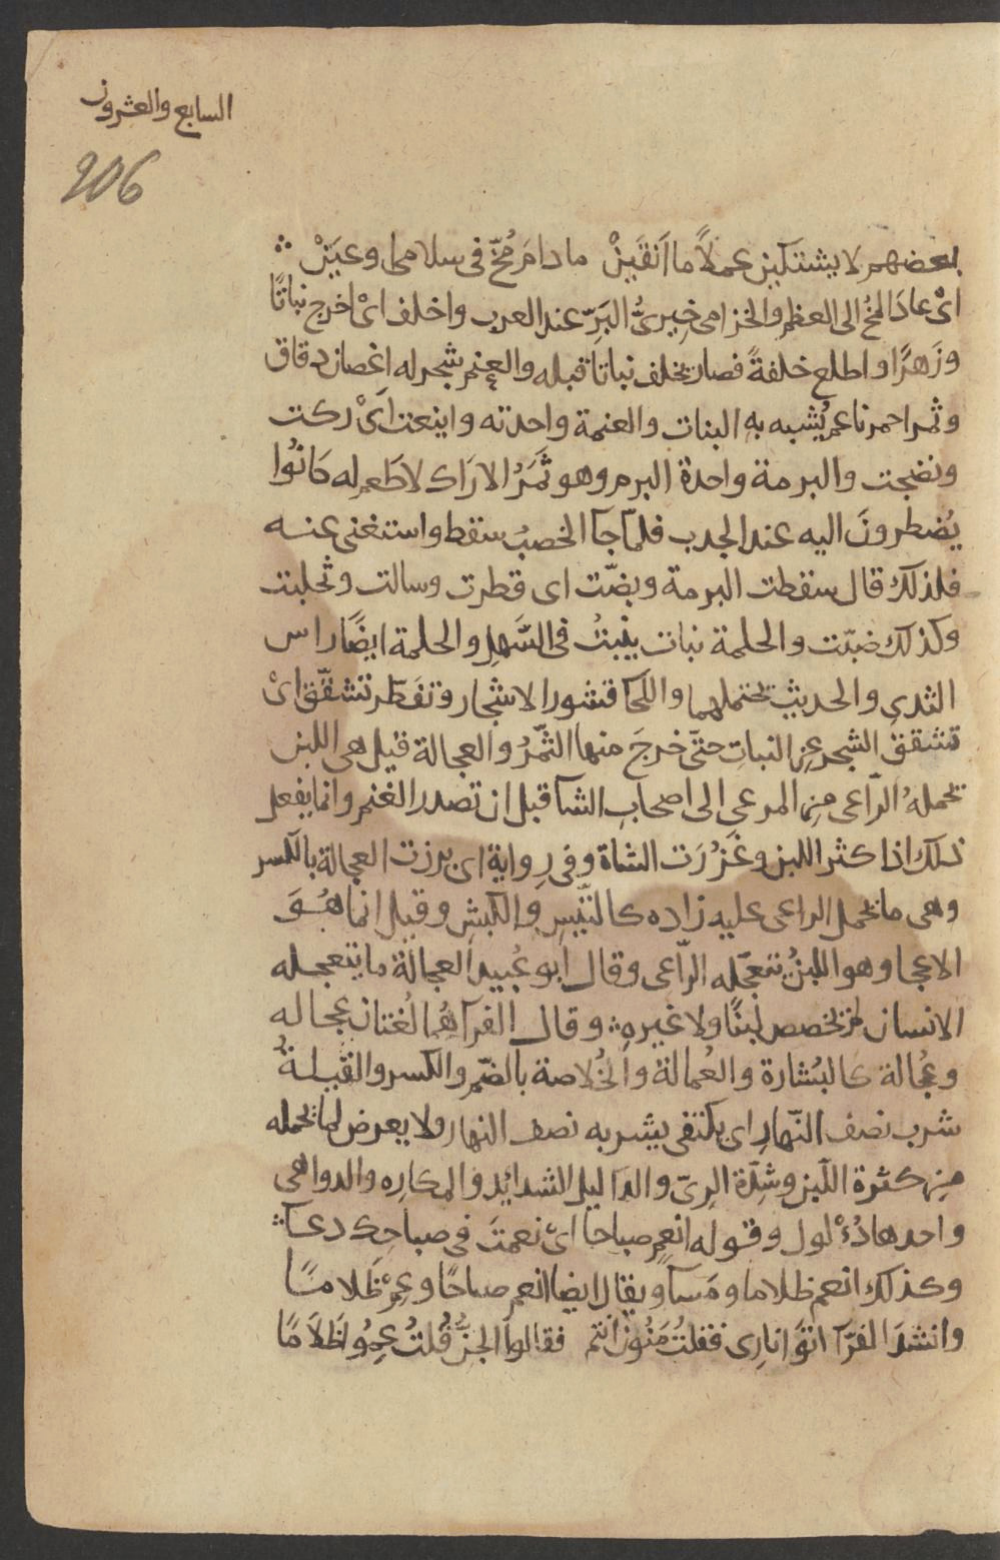 السابع والعشرون
206
بعضهم لا يشتكين عملًا ما أنقَينْ ما دامَ مُخّ في سلامى وعَينْ
اىْ عادَ المخ الى العظم والخزامى خِيرىُّ البَرّ عند العرب واخلف اىْ اخرج نباتًا
وزَهرًا واطلع خلفةً فصار يخلف نباتا قبله والعنم شجر له اغصان دقاق
وثمر احمر ناعم يُشبه به البنات والعنمة واحدته واينعت اىْ ادركت
ونضجت والبرمة واحدة البرم وهو ثَمَرُ الاراك لا طَعم له كانُوا
يُضطرونَ اليه عند الجدب فلمّا جآ الخصبُ سقط واستغنى عنه
فلذلك قال سقطت البرمة وبضّت اى قطرت وسالت وتحلبت
وكذلك ضبّت والحلمة نبات ينبتُ فى السَّهلِ والحلمة ايضًا راس
الثدى والحديث يحتملهما واللحا قشور الاشجار وتفَطر تشقّق اىْ
تشقق الشجر عن النباتِ حتّى خرجَ منها الثّمرُ والعجالة قيل هى اللبن
يحملهُ الرّاعى مِن المرعى الى اصحابِ الشآ قبل ان تصدر الغنم وانما يفعل
ذلك اذا كثر اللبن وغَزُرَت الشاة وفى رِواية اى برزت العجالة بالكسر
وهى ما يحمل الراعى عليه زاده كالتّيسِ والكبشِ وقيل انما هُوَ
الاعجا وهو اللبنُ يتعجّله الرّاعى وقال ابو عُبيد العجالة ما يتعجله
الانسان لم يخصص لبنًا ولا غيره وقال الفرآ هُما لُغتان عجاله
وعُجالة كالبُشارة والعُمالة والخُلاصة بالضّم والكسر والقَيلةُ
شرب نصف النّهارِ اى يكتفى بشربه نصف النهار ولا يعرض لما يحمله
مِن كثرة اللّبن وشِدّة الرِىّ والدآليل الشدائد والمكاره والدواهى
واحدها دُؤْلول وقوله انعم صباحا اىْ نعمتَ فى صباحِك دعآ
وكذلك انعم ظلاما ومَسآ ويقال ايضا انعم صباحًا وعِمْ ظَلامًا
وانشدَ الفرّآ اتوْا نارى فقلتُ مَنُونَ انتم فقالوا الجنُّ قُلتُ عِمُوا ظَلاَمًا